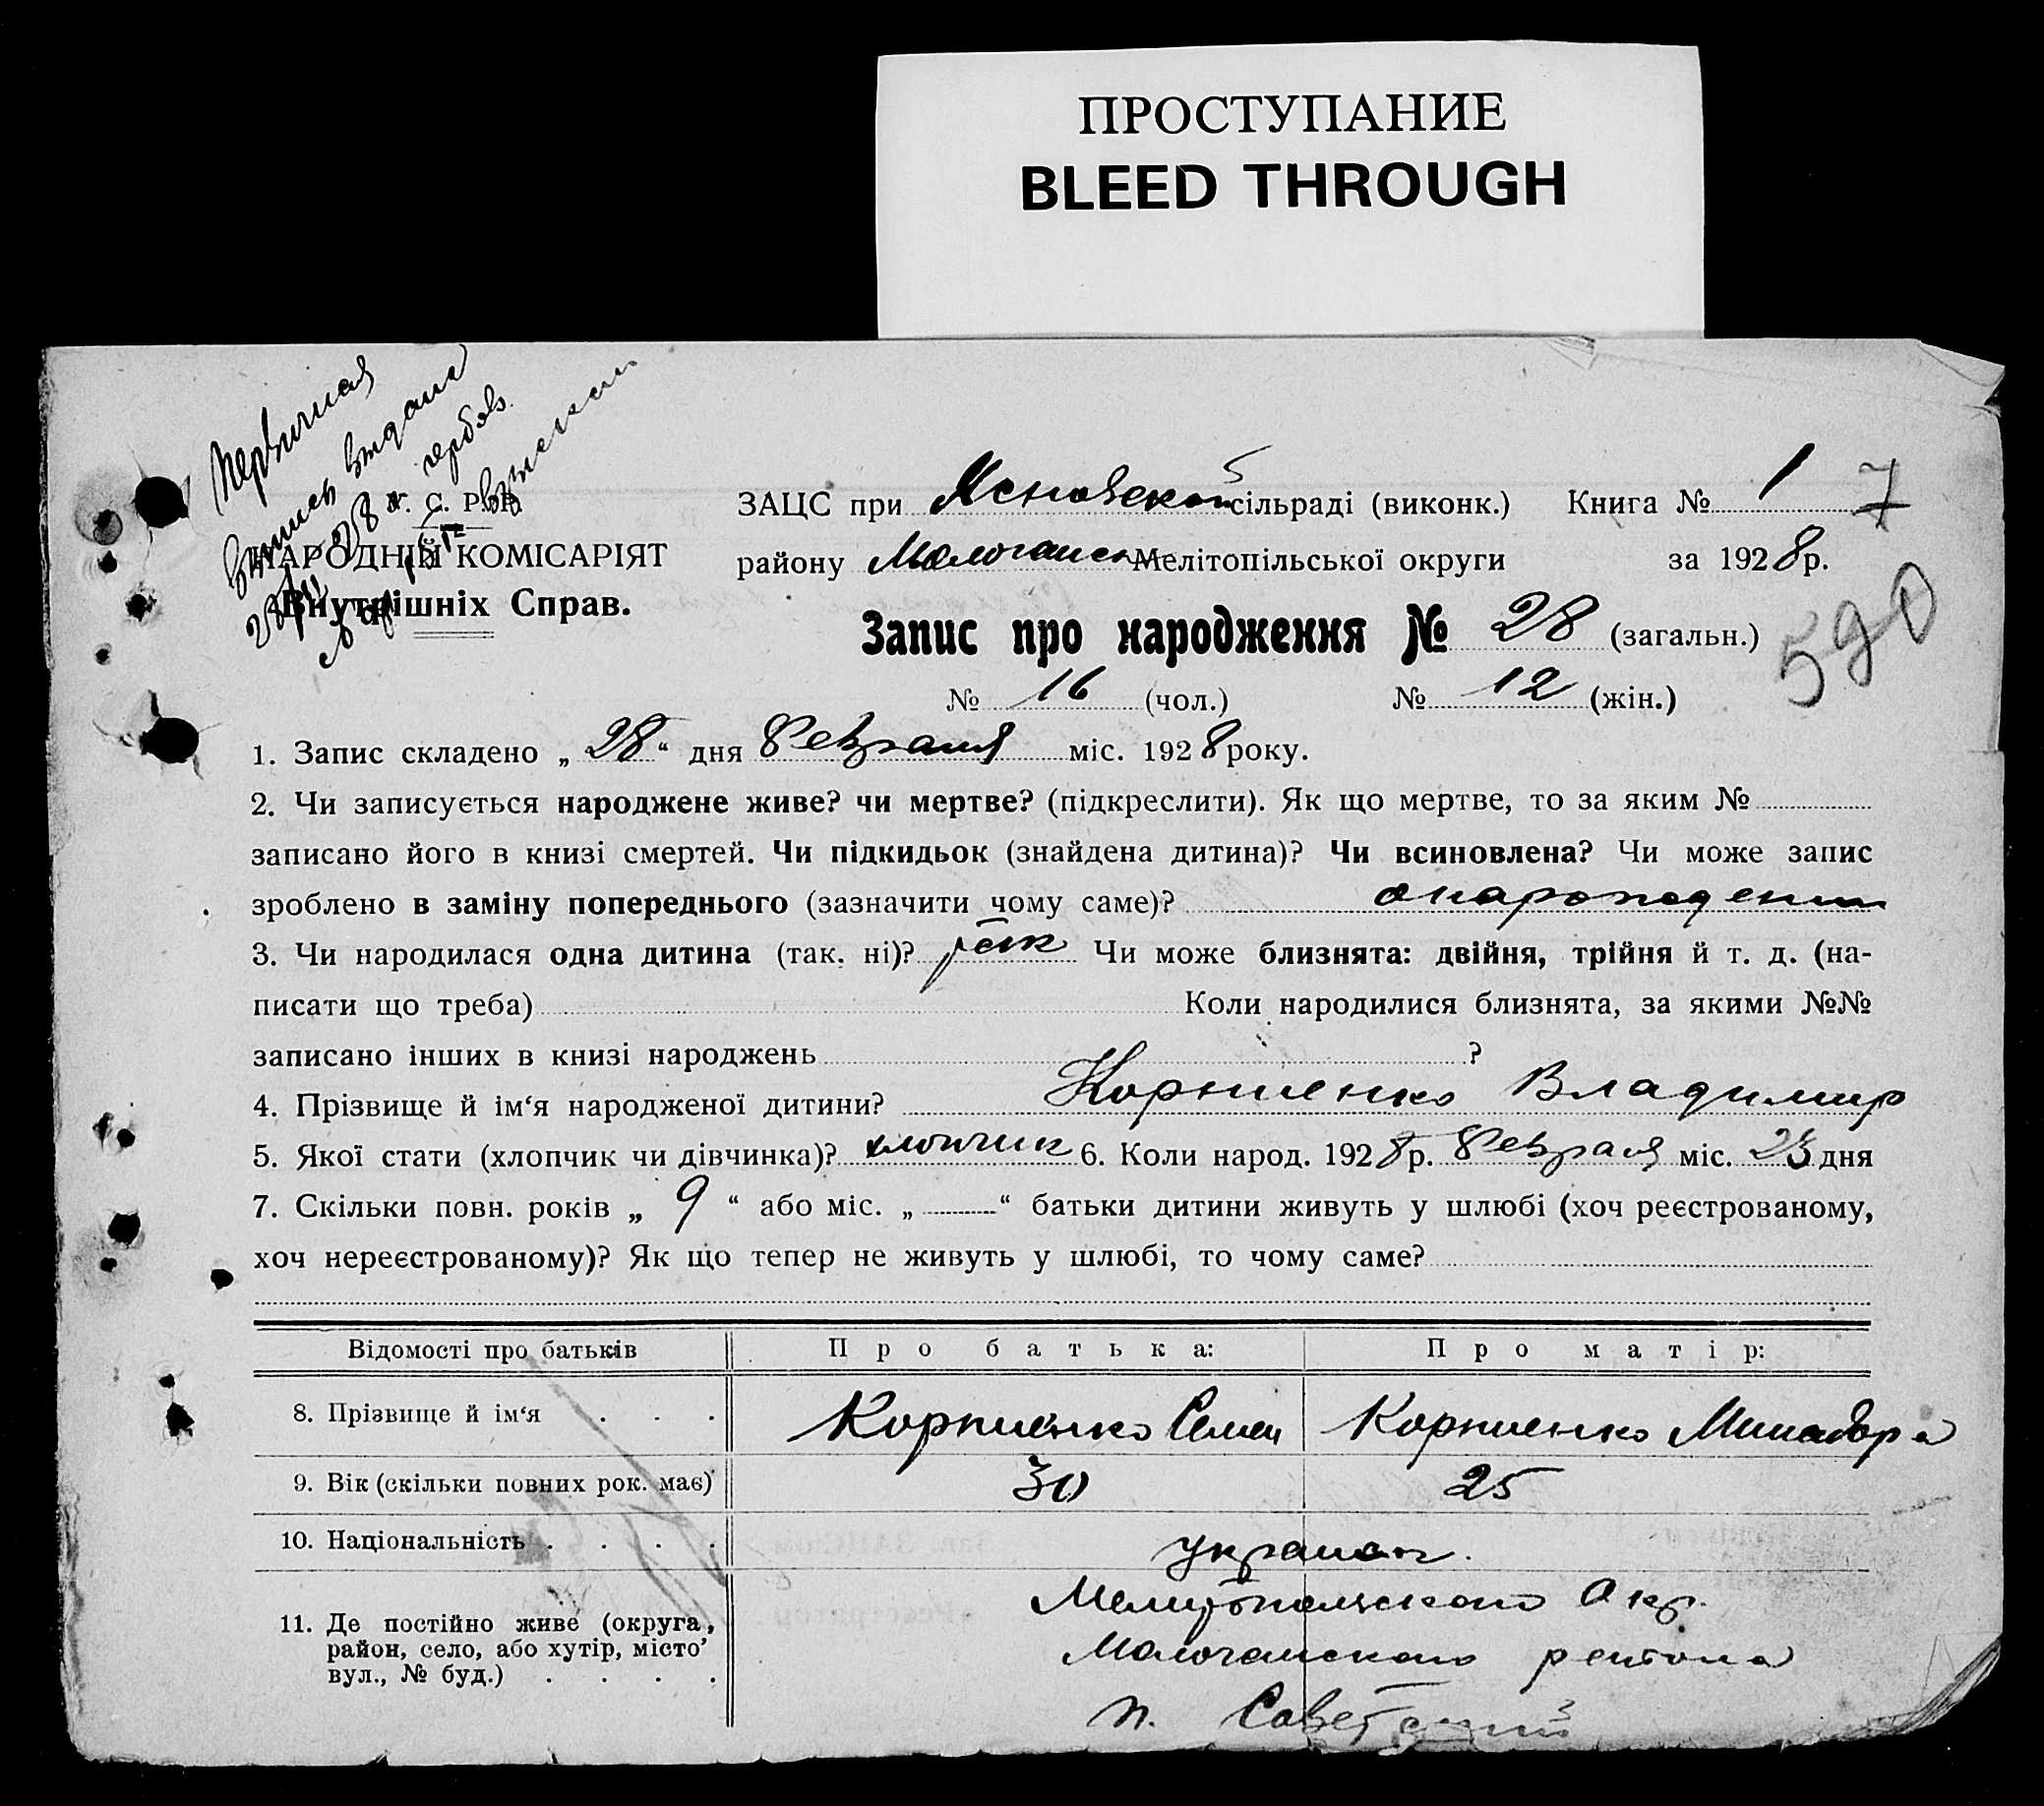 ПРОСТУПАНИЕ
BLEED THROUGH
Первичная
запись выдана
С. Р. Р.
НАРОДНІЙ КОМІСАРІЯТ
Внутрішніх Справ.
ЗАЦС при Ясновской сільраді (виконк.) Книга № 1 7
району Молочанск Мелітопільської округи за 1928 р.
590
Запис про народження № 28 (загальн.)
№ 16 (чол.) № 12 (жін.)
1. Запис складено „ 28 “ дня Февраля міс. 1928 року.
2. Чи записується народжене живе? чи мертве? (підкреслити). Як що мертве, то за яким №
записано його в книзі смертей. Чи підкидьок (знайдена дитина)? Чи всиновлена? Чи може запис
зроблено в заміну попереднього (зазначити чому саме)?
3. Чи народилася одна дитина (так, ні)? так Чи може близнята: двійня, трійня й т. д. (на-
писати що треба) Коли народилися близнята, за якими №№
записано інших в книзі народжень ?
4. Прізвище й ім‘я народженої дитини? Корниенко Владимир
5. Якої стати (хлопчик чи дівчинка)? хлопчик 6. Коли народ. 1928 р. Февраля міс. 23 дня
7. Скільки повн. років „ 9 “ або міс. „ — “ батьки дитини живуть у шлюбі (хоч реєстрованому,
хоч нереєстрованому)? Як що тепер не живуть у шлюбі, то чому саме?
Відомості про батьків Про батька: Про матір:
8. Прізвище й ім‘я . . . Корниенко Семен Корниенко
9. Вік (скільки повних рок. має) 30 25
10. Національність . . . . украинск.
11. Де постійно живе (округа, район, село, або хутір, місто’ вул., № буд.) . . . .
Мелитопольского Окр.
Молочанского района
п. Советский